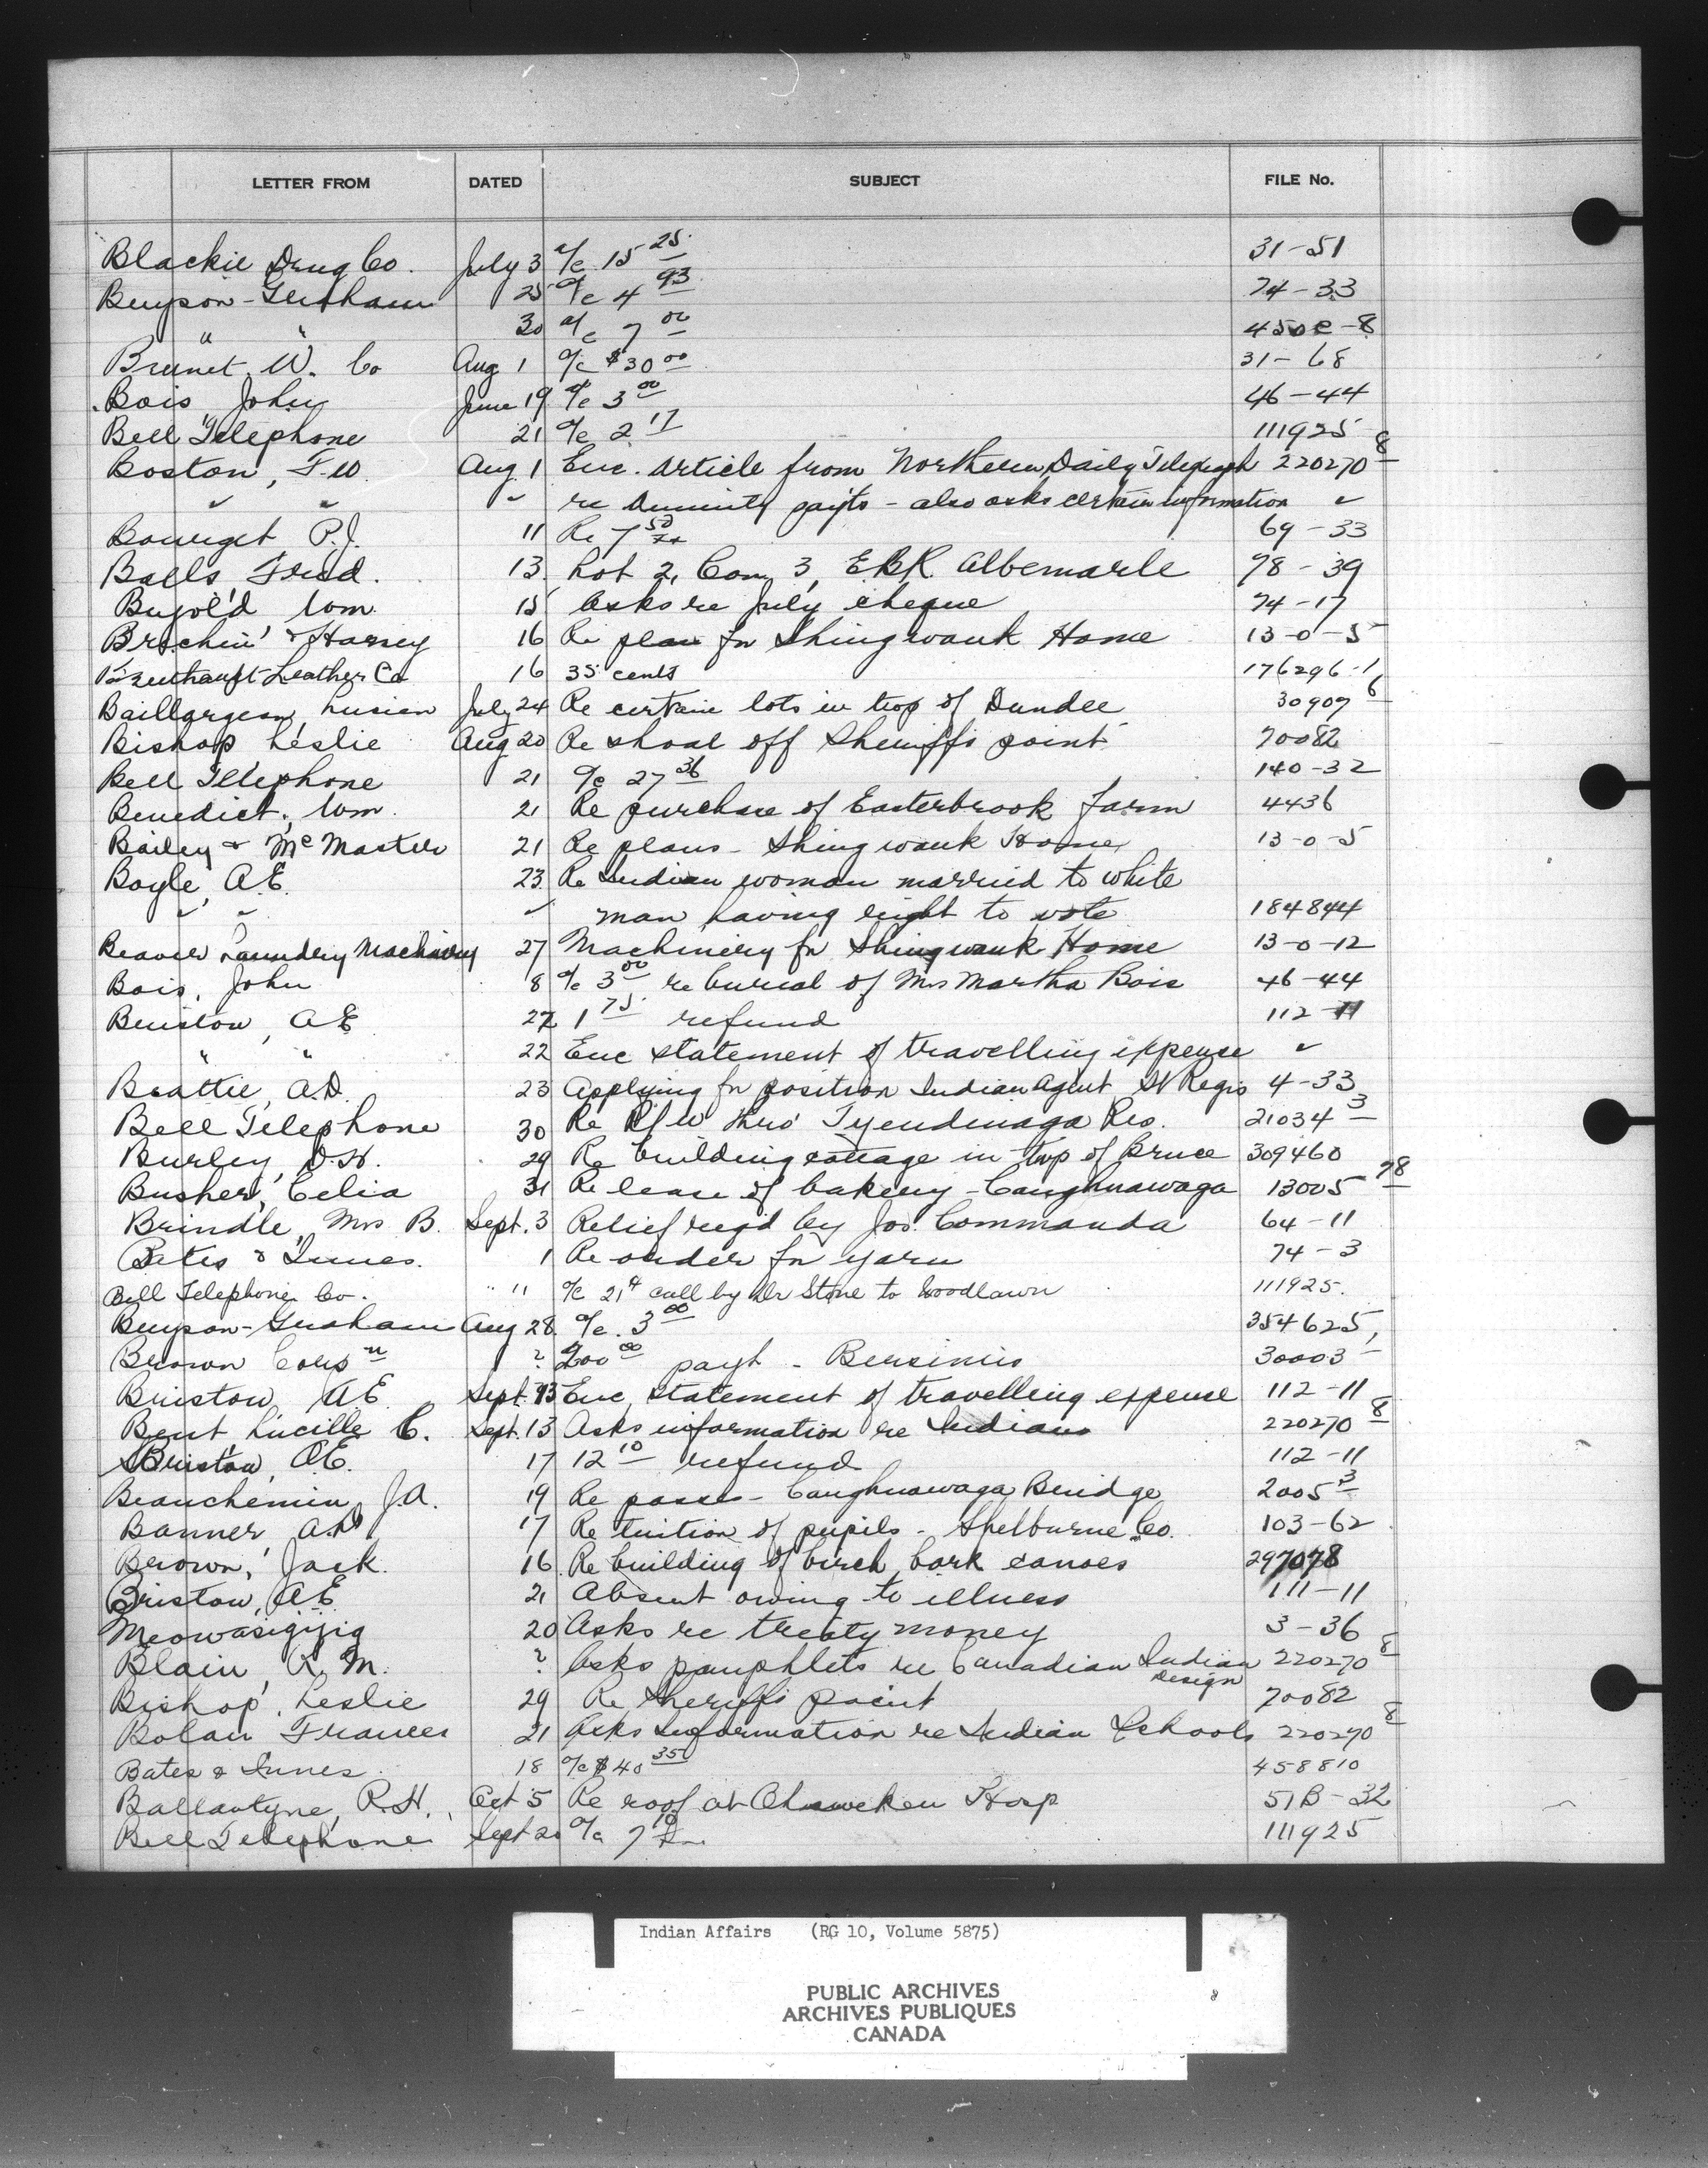 LETTER FROM DATED SUBJECT FILE No.
Blackie Drug Co. July 3 a/c 15 25 31-51
Bryson-Graham 25 a/c 4 93 74-33
" " 30 a/c 7 00 450e-8
Brunet, W. Co Aug 1 a/c $30 00 31-68
Bois John June 19 a/c 3 00 46-44
Bell Telephone 21 a/c 2 17 111925
Boston, F.W. Aug 1 Enc. article from Northern Daily Telegraph 220270 8
" " " re payts - also asks certain information "
Bourget P.J. 11 Re 7 50 69-33
Balls, Fred. 13 Lot 2, Con 3, E.B.R. Albemarle 78-39
Bujold Wom. 15 Asks re July cheque 74-17
& Harvey 16 Re plan for Shingwauk Home 13-0-5
Leather Co 16 35 cents 176296-1
Baillargeon, Lusien July 24 Re certain lots in twp of Dundee 30907 6
Bishop Leslie Aug 20 Re shoal off Sheriffs point 70082
Bell Telephone 21 a/c 27 36 140-32
Benedict, Wm. 21 Re purchase of Easterbrook farm 4436
Bailey & McMaster 21 Re plans - Shingwauk Home 13-0-5
Boyle, A.E. 23 Re Indian woman married to white
" " " man having right to vote 184844
Beaver Laundry Machinery 27 Machinery for Shingwauk Home 13-0-12
Bois, John 8 a/c 3 00 re burial of Mrs Martha Bois 46-44
Bristow, A E 27 1 75 refund 112-11
" " 22 Enc statement of travelling expense "
Beattie, A.D. 23 Applying for position Indian Agent St Regis 4-33
Bell Telephone 30 Re R/W thro' Tyendinaga Res. 21034 3
Burley, D.H. 29 Re building cottage in twp of Bruce 309460
Busher, Celia 31 Re lease of bakery - Caughnawaga 13005 78
Brindle, Mrs B. Sept. 3 Relief reqd by Jos. Commanda 64-11
Bates & Innes. 1 Re order for yarn 74-3
Bell Telephone Co. " 11 a/c 21 4 call by Dr Stone to Woodlawn 111925.
Bryson-Graham Aug 28 a/c 3 00 354625,
Brown Corpn ? 200 00 payt - Bersimis 30003
Bristow, A.E. Sept. 13 Enc statement of travelling expense 112-11
Bent Lucille C. Sept. 13 Asks information re Indians 220270 8
Bristow, A.E. 17 12 10 refund 112-11
Beauchemin, J.A. 19 Re passes - Caughnawaga Bridge 2005 3
Banner, A. 17 Re tuition of pupils - Shelburne Co. 103-62
Brown, Jack. 16 Re building of birch bark canoes 297078
Bristow, A E 21 Absent owing to illness 111-11
Meowasigijig 20 Asks re treaty money 3-36
Blain, R. M. ? Asks pamphlets re Canadian Indian 220270 8
Design
Bishop, Leslie 29 Re Sheriffs point 70082
Bolan Frances 21 Asks information re Indian Schools 220270 8
Bates & Innes. 18 a/c $40 35 458810
Ballantyne, R.H. Oct 5 Re roof at Ohsweken Hosp 51B-32
Bell Telephone Sept 20 a/c 7 10 111925
Indian Affairs (RG 10, Volume 5875)
PUBLIC ARCHIVES
ARCHIVES PUBLIQUES
CANADA